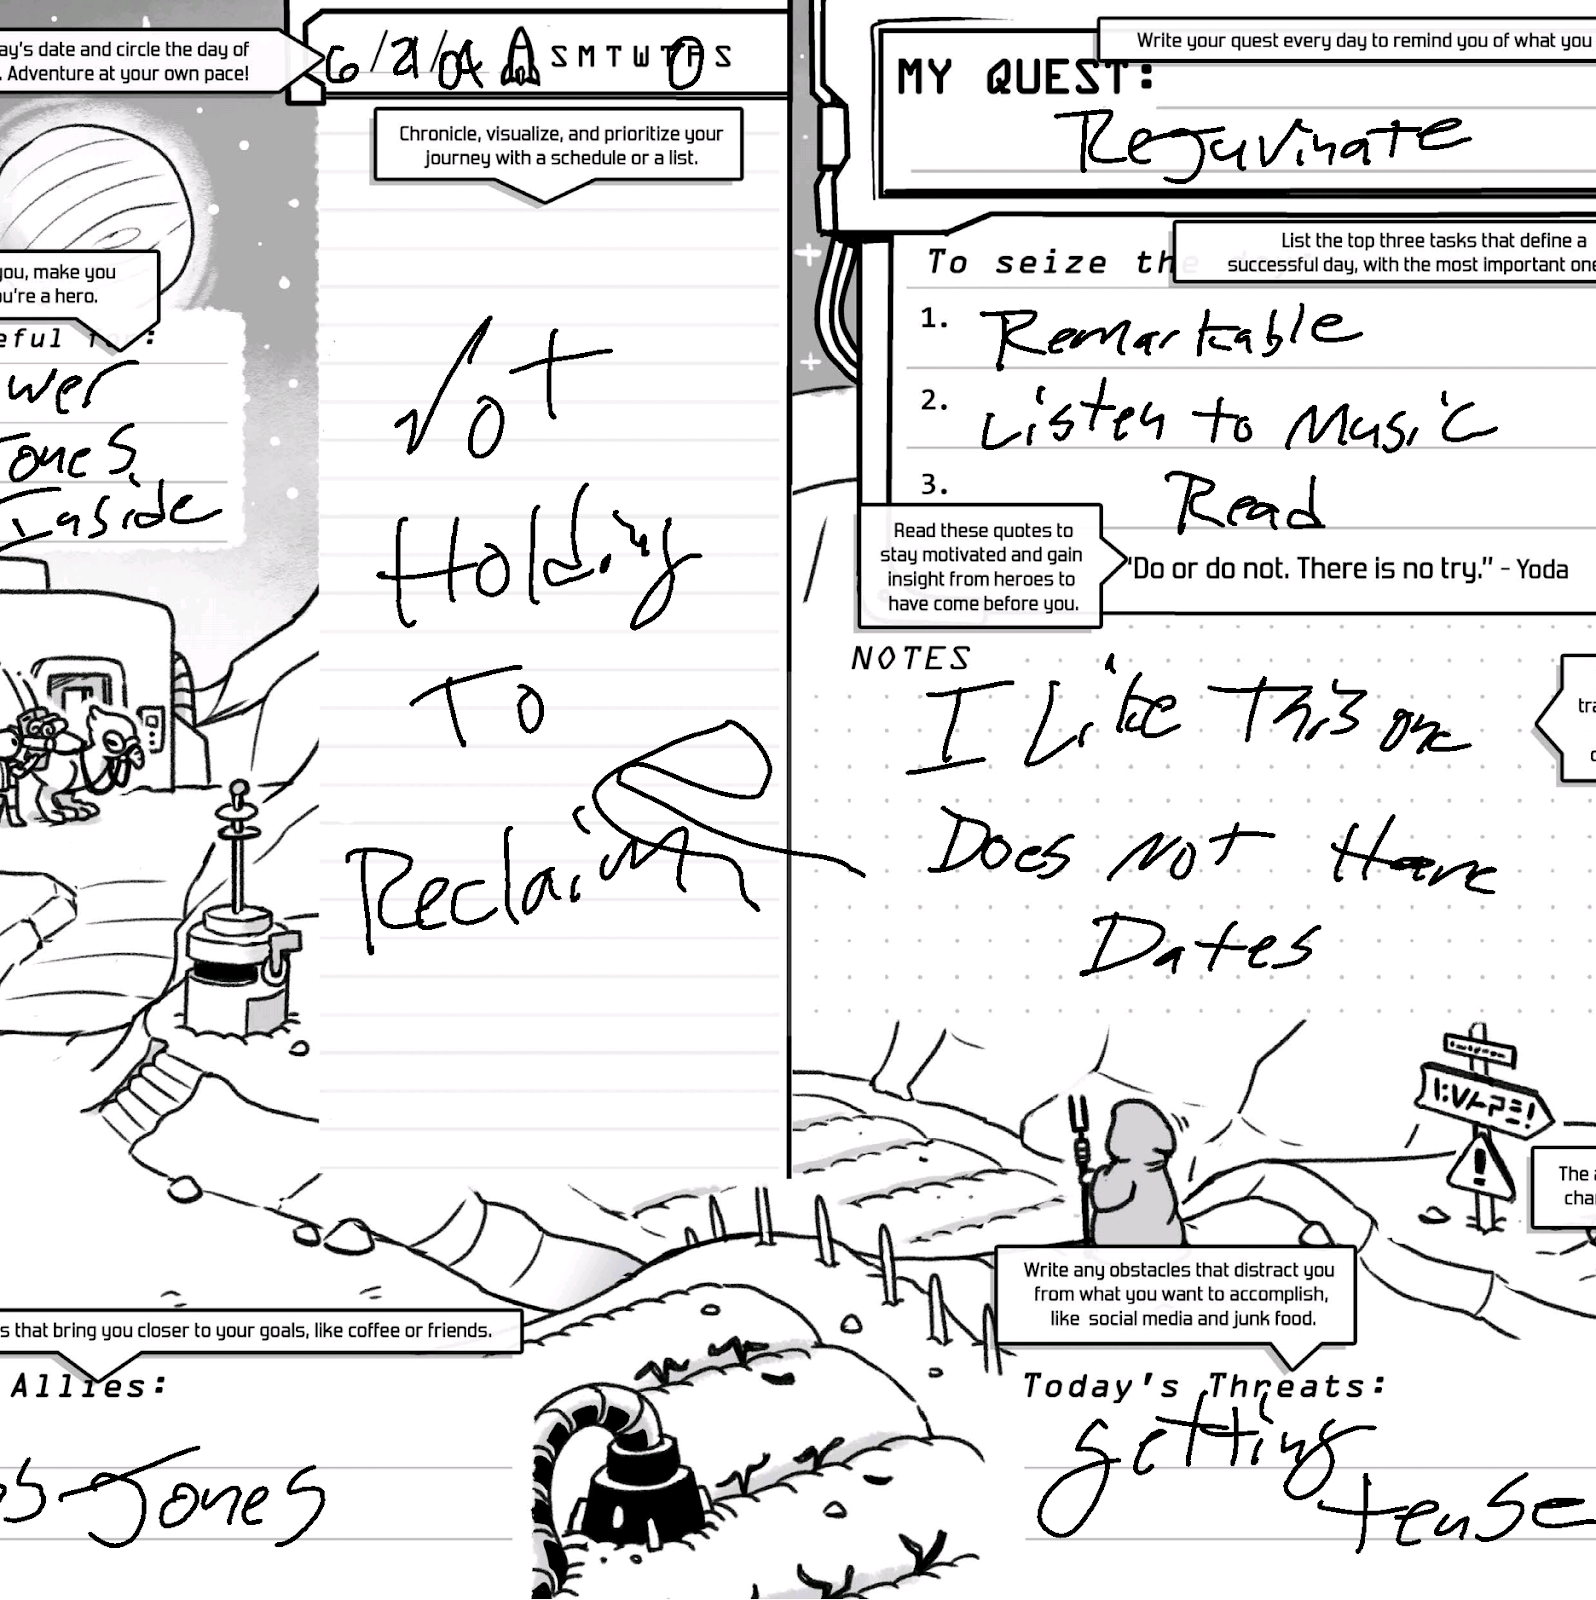 ay's date and circle the day of
. Adventure at your own pace!
6/21/04 S M T W T F S
Chronicle, visualize, and prioritize your
journey with a schedule or a list.
you, make you
ou're a hero.
eful
wer
Jones
Inside
Not
Holding
To
Reclaim
s that bring you closer to your goals, like coffee or friends.
Allies:
Jones
Write your quest every day to remind you of what you
MY QUEST:
Rejuvinate
To seize th
List the top three tasks that define a
successful day, with the most important one
1. Remarkable
2. Listen to Music
3. Read
Read these quotes to
stay motivated and gain
insight from heroes to
have come before you.
"Do or do not. There is no try." – Yoda
NOTES
I Like This one
Does Not Have
Dates
tra
The a
cha
Write any obstacles that distract you
from what you want to accomplish,
like social media and junk food.
Today's Threats:
getting
tense